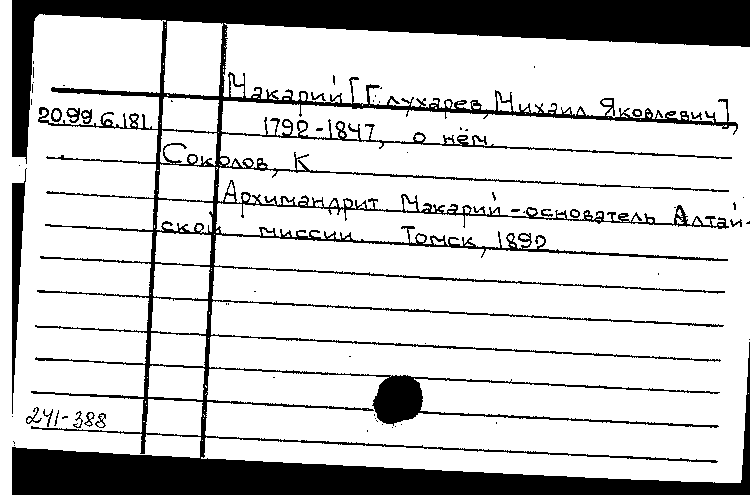 Макарий [Глухарев, Михаил Яковлевич],
20.99.6.181.
1792-1847, о нём.
Соколов, К
Архимандрит Макарий - основатель Алтай-
ской миссии. Томск, 1890
241-388